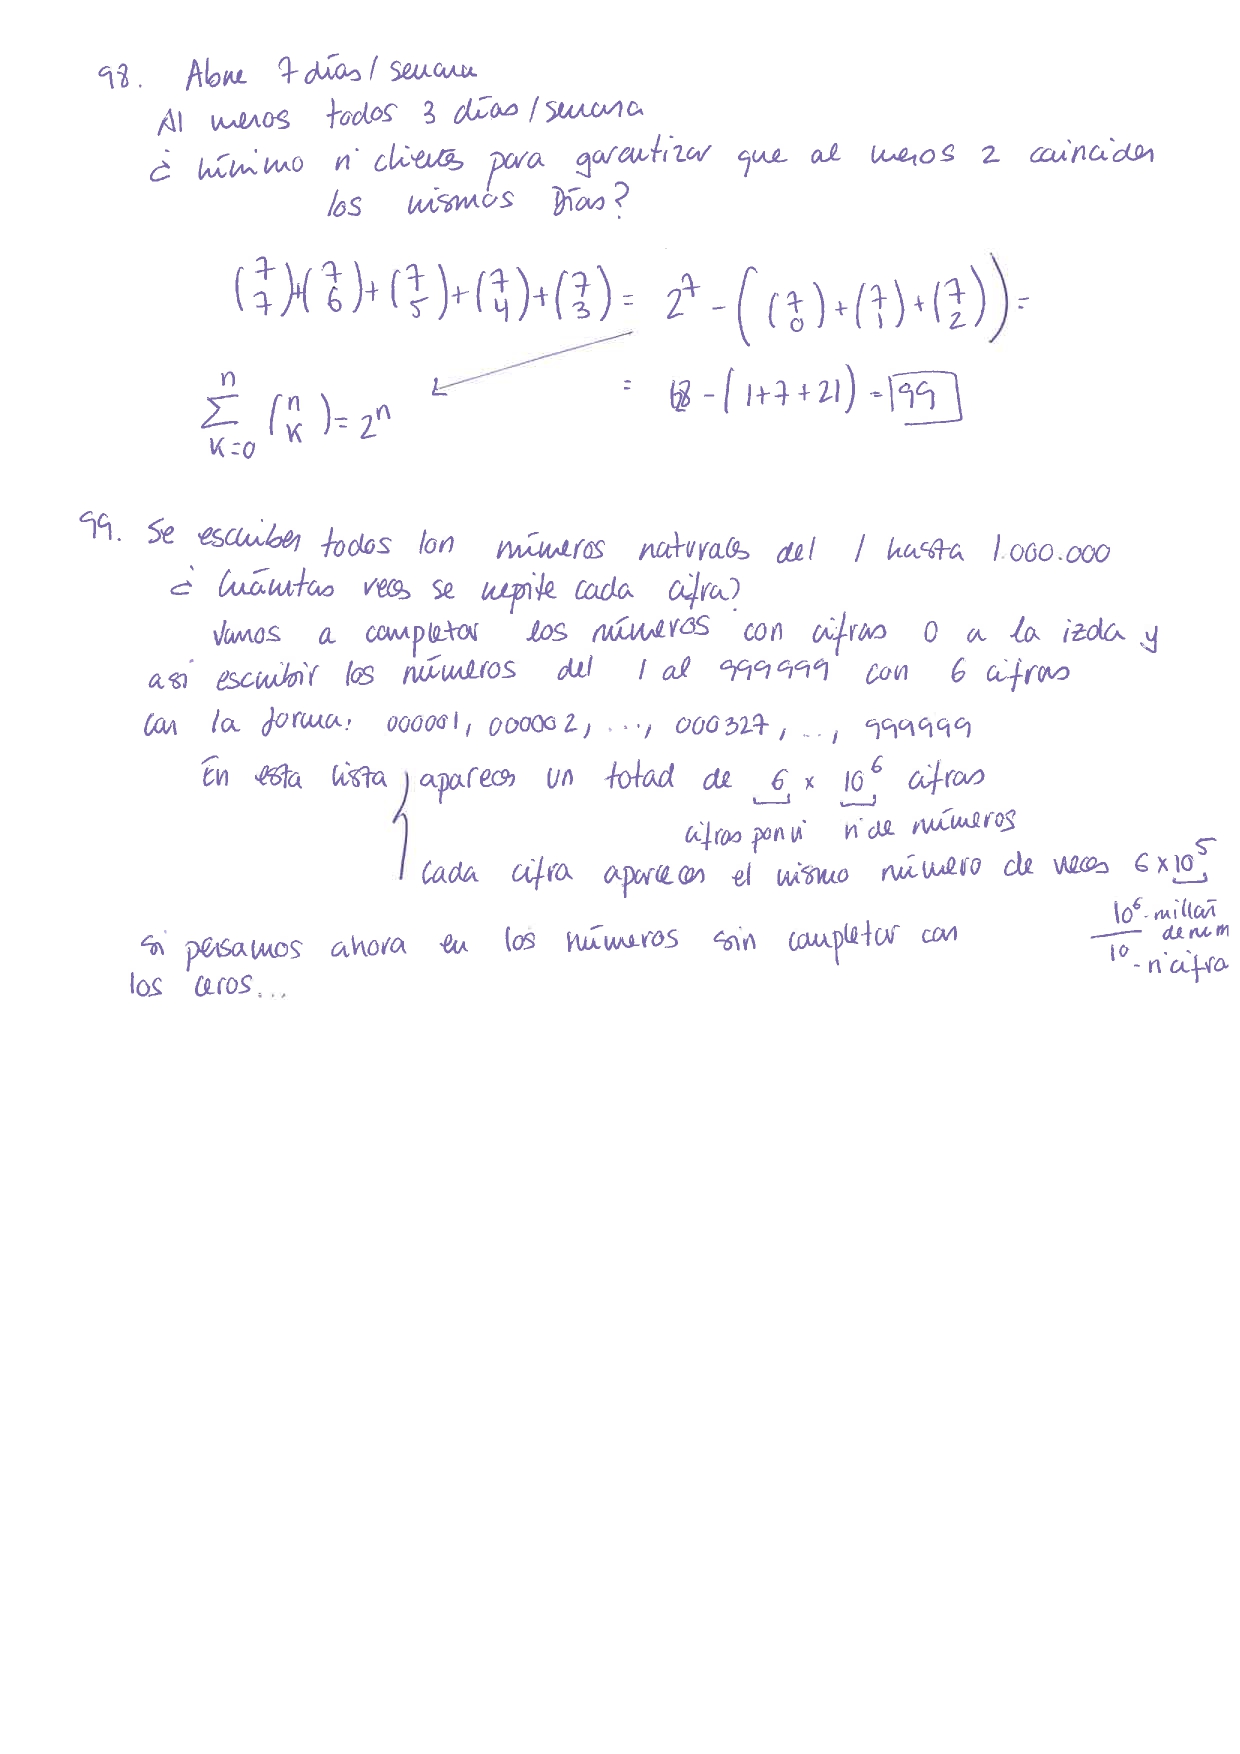 98. Abre 7 días/semana
Al menos todos 3 días/semana
¿ Mínimo nº clientes para garantizar que al menos 2 coinciden
los mismos Días?
(7 7)+(7 6)+(7 5)+(7 4)+(7 3) = 2^7 - ((7 0)+(7 1)+(7 2)) =
= 128 - (1+7+21) = 99
∑_{K=0}^{n} (n K) = 2^n
99. Se escriben todos los números naturales del 1 hasta 1.000.000
¿ Cuántas veces se repite cada cifra?
Vamos a completar los números con cifras 0 a la izda y
así escribir los números del 1 al 999999 con 6 cifras
con la forma: 000001, 000002, ..., 000327, ..., 999999
En esta lista aparecen un totad de 6 x 10^6 cifras
cifras por nº nº de números
Cada cifra aparecen el mismo número de veces 6 x 10^5
10^6 - millón de num
10 - nº cifra
Si pensamos ahora en los números sin completar con
los ceros...